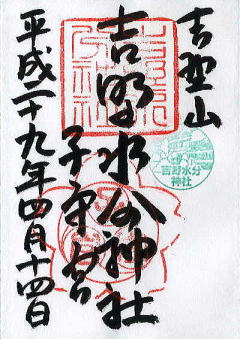 吉野山
吉野水分神社
子守宮
平成二十九年四月十四日
吉野水分
神社